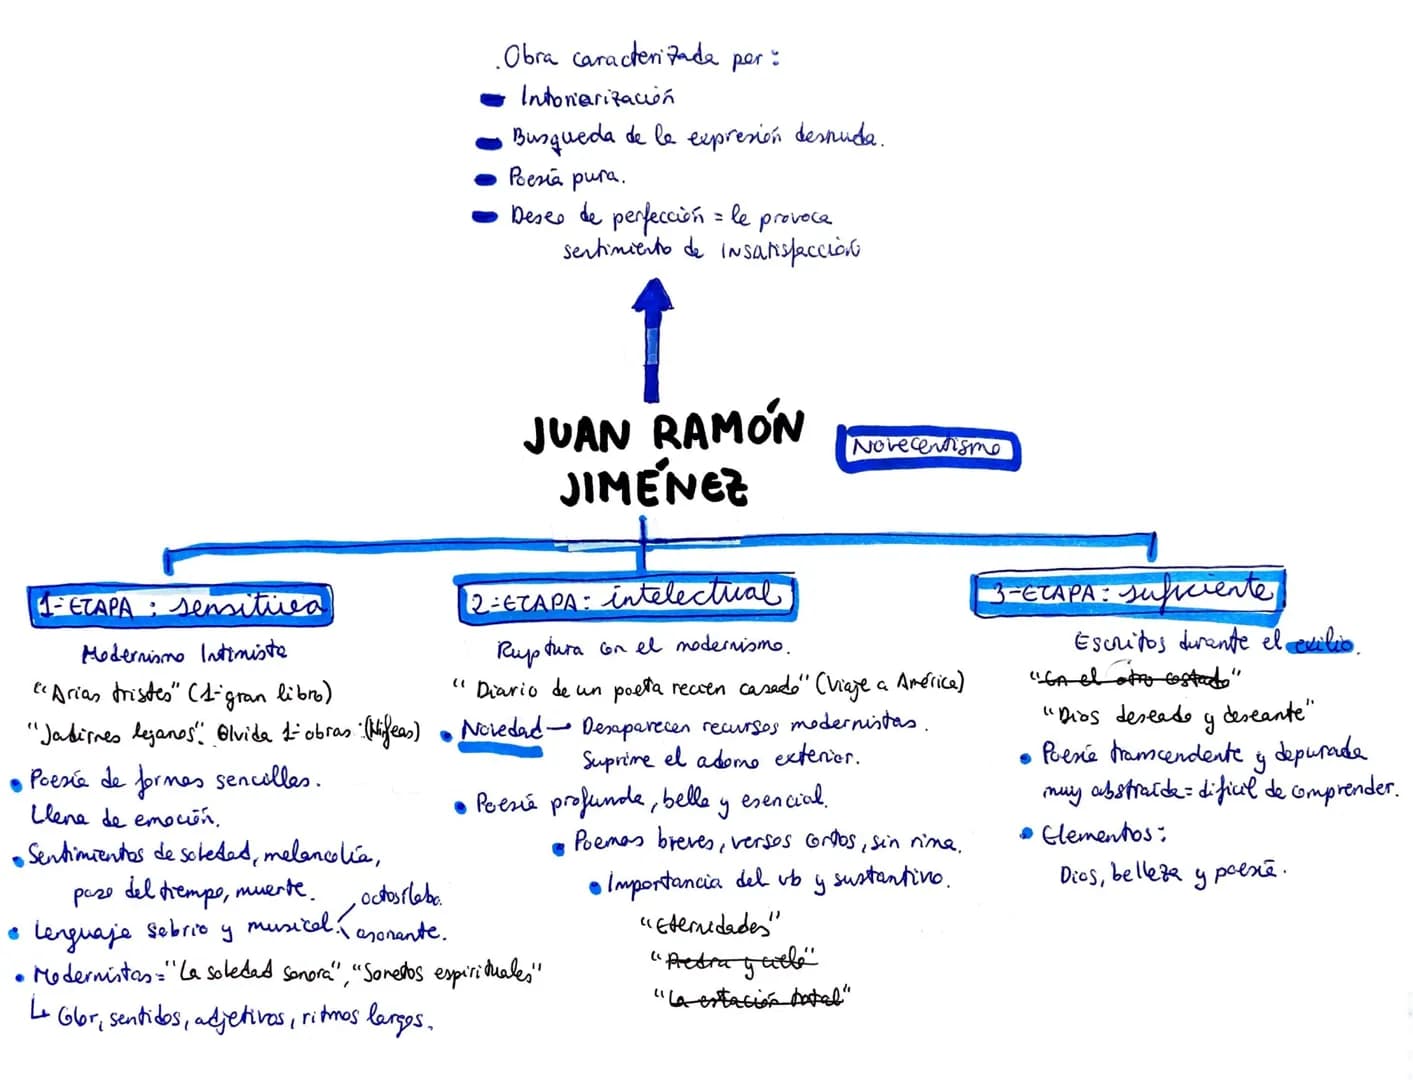 .Obra caracterizada por:
Intoriarización
Busqueda de la expresión desnuda.
Poesía pura.
Deseo de perfección = le provoca
sentimiento de insatisfacción
JUAN RAMÓN
JIMÉNEZ
Novecentismo
1-ETAPA: sensitiva
Modernismo Intimista
"Arias tristes" (1-gran libro)
"Jardines lejanos". Olvida 1-obras:(Nifeas)
Poesía de formas sencillas.
Llena de emoción.
Sentimientos de soledad, melancolía,
paso del tiempo, muerte.
octosílabo.
Lenguaje sobrio y musical
asonante.
Modernistas="La soledad sonora", "Sonetos espirituales"
↳ Color, sentidos, adjetivos, ritmos largos.
2-ETAPA: intelectual
Ruptura con el modernismo.
"Diario de un poeta recien casado" (Viaje a América)
Novedad → Desaparecen recursos modernistas.
Suprime el adorno exterior.
Poesía profunda, bella y esencial.
Poemas breves, versos cortos, sin rima.
Importancia del vb y sustantivo.
"Eternidades"
"Piedra y cielo"
"La estación total"
3-ETAPA: suficiente
Escritos durante el exilio.
"En el otro costado"
"Dios deseado y deseante"
Poesía transcendente y depurada
muy abstraída = dificil de comprender.
Elementos:
Dios, belleza y poesía.